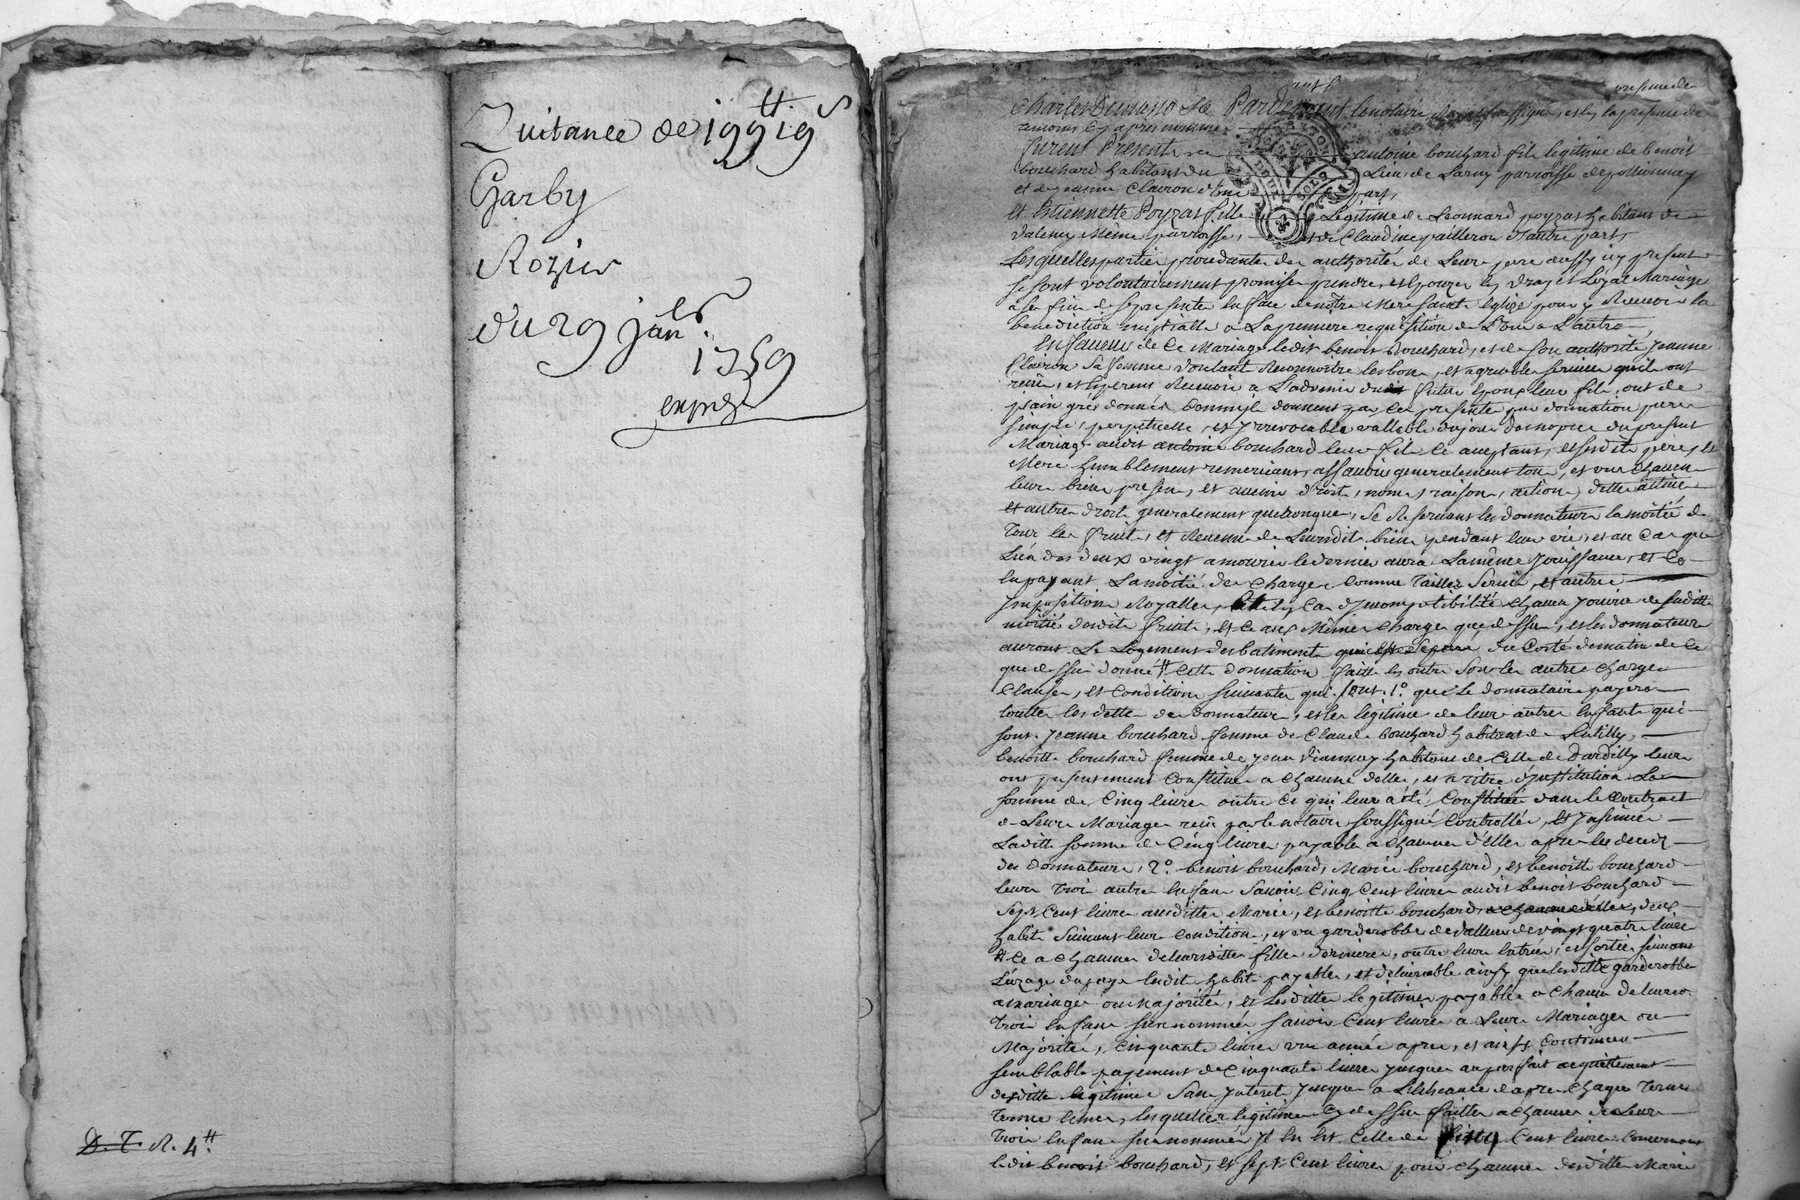 Quitance de 199tt 19s
Charby
Rozier
du 29 janer
1759
expedé
D. T. R. 4tt
Charles Demasso Pardevant le notaire Royal soussigné, et en la presence des
temoins cy apres nommés
furent Presents antoine bouchard fils legitime de benoit
bouchard habitant du Lieu de Larny parroisse de pollionnay
et de jeanne Clairon d'une part,
et Estiennette Poyzas fille Legitime de Leonnard poyzas habitant de
Valeny Même parroisse, et de Claudine pailleron d'autre part,
Lesquelles parties procedantes de authorités de Leurs pere aussy icy presents
se sont volontairement promises prendre, et Epouzer en vray et Légal Mariage
a ses fins de se presenter en face de nôtre Mere sainte Eglize pour y Recevoir la
benediction nuptialle a La premiere requisition de L'une a L'autre
En faveur de Ce Mariage ledit benoit Bouchard, et de son authorité jeanne
Clairon Sa femme voulant Reconnoitre les bons, et agreables services qu'ils ont
reçus, et Esperent Recevoir a L'advenir du futur Epoux leur fils, ont de
plain gré donnés Comm'ils donnent par Ces presentes par donnation pure
simple, perpetuelle, et jrrevocable vallable du jour des nopces du present
Mariage audit antoine bouchard leur fils Ce aceptant, et sesdits pere, et
Mere humblement remerciant, assavoir generalement tous, et uns Chacun
leurs biens presens, et avenir droits, noms, raisons, actions, dettes actives
et autres droits generalement quelconques, Se Reservant les donnateurs la moitié de
Tous les fruits, et Revenus de Leursdits biens pendant leur vie, et au Cas que
L'un des deux vint a mourir le dernier aura La même jouissance, et Ce
en payant La moitié des Charges Comme Tailles Servis, et autres
jmpositions Royalles, et En Cas d'jncompatibilité Chacun jouira de sudite
moitié desdits fruits, et Ce aux Mêmes Charges que dessus, et les donnateurs
auront Le Logement des batiments du Costé de matin de Ce
que dessus donné tt Cette donnation faitte En outre Sous les autres Charges
Clauses, et Conditions suivantes qui sont. 1° que le donnataire payera
toutes les dettes des donnateurs, et les legitimes de leurs autres Enfants qui
sont jeanne bouchard femme de Claude bouchard habitant de Lentilly,
benoitte bouchard femme de jean Viannay habitant de Celle de Dardilly leurs
ont presentement Constitué a Chacune d'elles, et a titre d'jnstitution La
somme de Cinq livres outre Ce qui leur a été Constitué dans le Contract
de Leurs Mariages reçu par le notaire soussigné Controllés, et jnsinués
Laditte somme de Cinq livres payable a Chacune d'elles apres les deces
des donnateurs, 2° benoit bouchard, Marie bouchard, et benoitte bouchard
leurs Trois autres Enfans Savoir Cinq Cent livres audit benoit bouchard
Sept Cent livres ausdittes Marie, et benoitte bouchard a Chacune d'elles, deux
habits Suivant leur Condition, et un garderobbe de valleur de vingt quatre livres
tt Ce a Chacune de leursdittes filles dernieres, outre leur Entrée, et sortie suivant
L'uzage du pays lesdits habits payables, et delivrables ainsy que lesdittes garderobbes
a mariage ou majorité, et Lesdittes legitimes payables a Chacun de leurs
Trois Enfans surnommés savoir Cent livres a Leurs Mariages ou
Majorités, Cinquante livres une année apres, et ainsy Continuer
semblable payement de Cinquante livres jusques au parfait acquittement
desdittes legitimes sans jnterets jusques a L'Echeance d'apres Chaque Terme
Terme Echus, lesquelles legitimes Cy dessus faittes a Chacune de Leurs
Trois Enfans surnommés Cent livres Concernant
ledit benoit bouchard, et sept Cent livres pour Chacune desdittes Marie